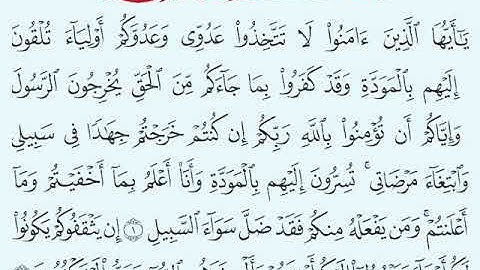 يَٰٓأَيُّهَا ٱلَّذِينَ ءَامَنُوا۟ لَا تَتَّخِذُوا۟ عَدُوِّى وَعَدُوَّكُمْ أَوْلِيَآءَ تُلْقُونَ
إِلَيْهِم بِٱلْمَوَدَّةِ وَقَدْ كَفَرُوا۟ بِمَا جَآءَكُم مِّنَ ٱلْحَقِّ يُخْرِجُونَ ٱلرَّسُولَ
وَإِيَّاكُمْ أَن تُؤْمِنُوا۟ بِٱللَّهِ رَبِّكُمْ إِن كُنتُمْ خَرَجْتُمْ جِهَٰدًا فِى سَبِيلِى
وَٱبْتِغَآءَ مَرْضَاتِى ۚ تُسِرُّونَ إِلَيْهِم بِٱلْمَوَدَّةِ وَأَنَا۠ أَعْلَمُ بِمَآ أَخْفَيْتُمْ وَمَآ
أَعْلَنتُمْ ۚ وَمَن يَفْعَلْهُ مِنكُمْ فَقَدْ ضَلَّ سَوَآءَ ٱلسَّبِيلِ ١ إِن يَثْقَفُوكُمْ يَكُونُوا۟